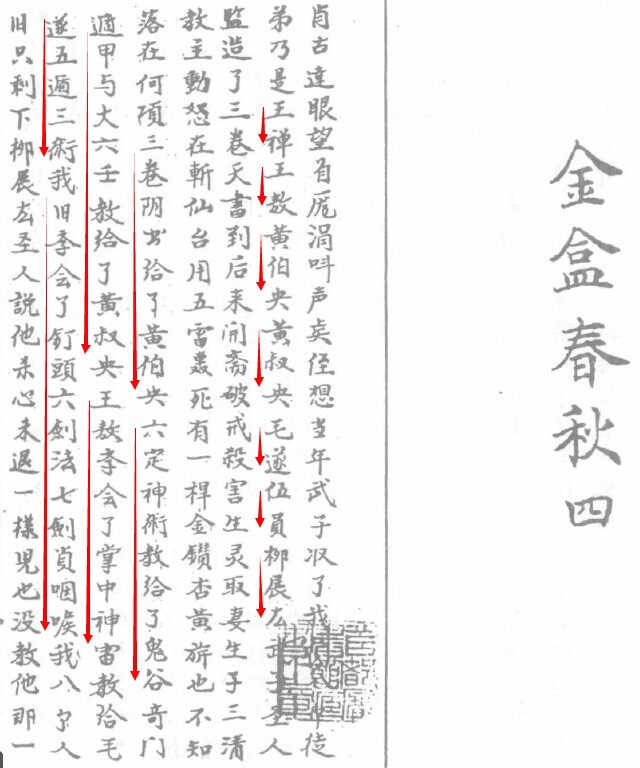 金盒春秋四
肖古達眼望自厑涓呌声矣侄想当年武子収了我徒
弟乃是王禅王敖黄伯央黄叔央毛遂伍員柳展厷圣人
監造了三卷天書到后来開斋破戒殺害生灵取妻生子三清
教主動怒在斬仙台用五雷轰死有一桿金鑽杏黄旂也不知
落在何項三卷阴书给了黄伯央六定神術教给了鬼谷奇门
遁甲与大六壬教给了黄叔央王敖孛会了掌中神雷教给毛
遂五遁三術我旧孛会了釘頭六劍法七劍咽唉我八个人
旧只剩下柳展厷圣人説他杀心未退一様児也没教他那一